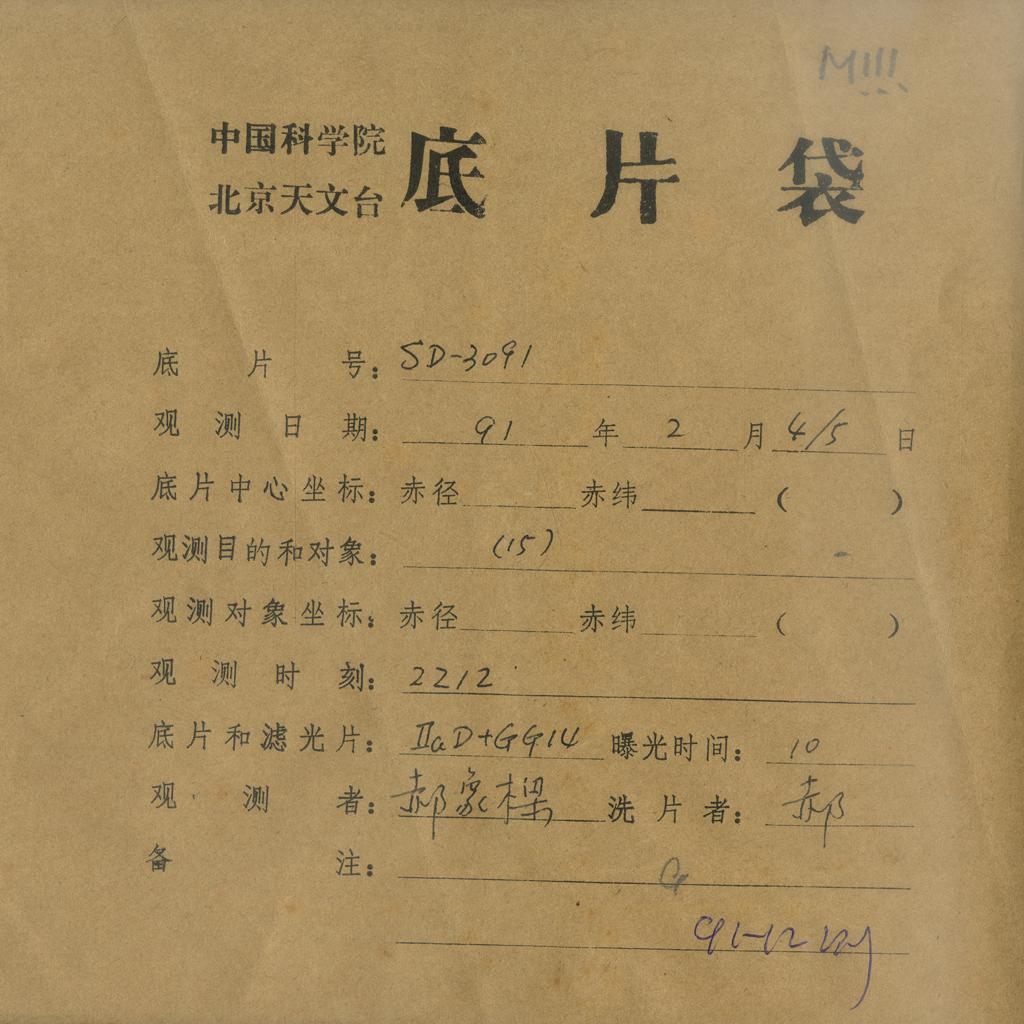 M!!!
中国科学院
北京天文台
底片袋
底片号：SD-3091
观测日期：91年2月4/5日
底片中心坐标：赤径 赤纬 （ ）
观测目的和对象：(15)
观测对象坐标：赤径 赤纬 （ ）
观测时刻：2212
底片和滤光片：IIaD+GG14 曝光时间：10
观测者：郝象樑 洗片者：郝
备注：